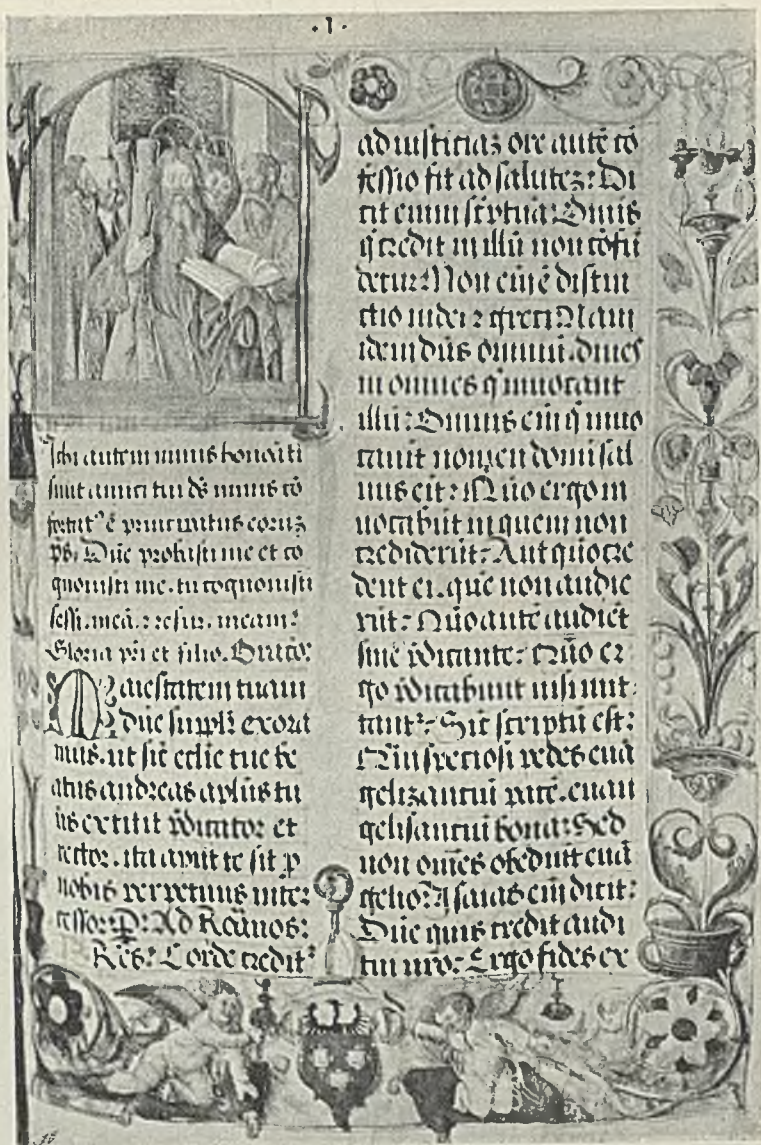 .I.
Michi autem nimis honorati
sunt amici tui ds nimis cō
fortat⁹ ē principatus eoruȝ
ps. Dñe probasti me et co
gnouisti me. tu cognouisti
sessi. meā. ⁊ resur. meam.
Gloria pri et filio. Oratio:
Maiestatem tuam
dñe suppli exora
mus. ut sic ecclie tue be
atus andreas aplus tu
us extitit pdicator et
rector. ita aput te sit p
nobis perpetuus inter
cessor: P: Ad Romanos:
Res: Corde credit²
ad iusticiaȝ ore autē cō
fessio fit ad saluteȝ: Di
cit enim scptura: Omis
q credit in illū non cōfū
detur: Non eim ē distin
ctio iudei ⁊ greci Nam
idem dūs omniū. diues
in omnes q inuocant
illū: Omnis eim q inuo
cauit nomen domi sal
uus erit: Quo ergo in
uocabūt in quem non
crediderūt: Aut quo cre
dent ei. quē non audie
rūt: Quo autē audiēt
sine pdicante: Quo er
go pdicabunt nisi mit
tant²: Sic scriptū est:
Quā speciosi pedes euā
gelizantiū pacē. euan
gelisantiū bona: Sed
non omēs obediūt euā
gelio: Isaias eim dicit:
Dñe quis credit audi
tui nro: Ergo fides ex